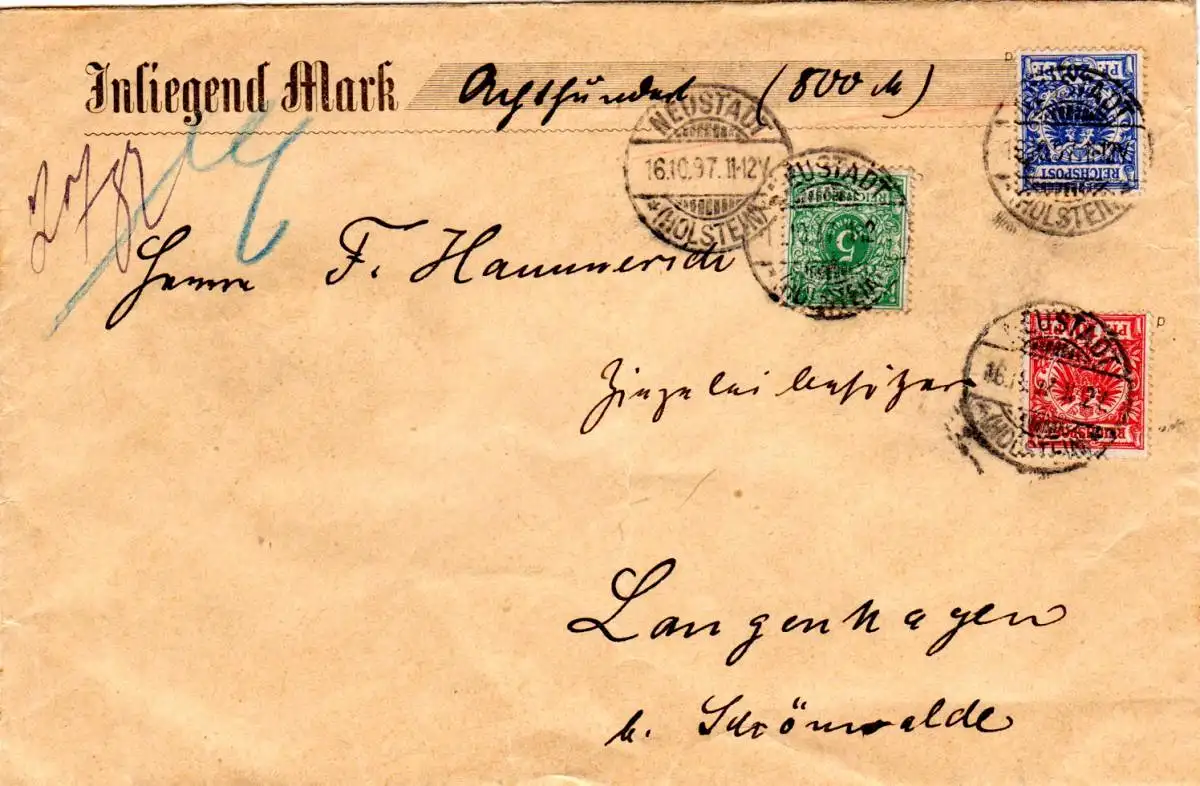 Inliegend Mark Achthundert (800 M)
NEUSTADT
16.10.97. 11-12V.
*(HOLSTEIN)*
REICHSPOST
5
NEUSTADT
(HOLSTEIN)
NEUSTADT
(HOLSTEIN)
REICHSPOST
Herrn F. Hammerich
Ziegeleibesitzer
Langenhagen
b. Schönwalde